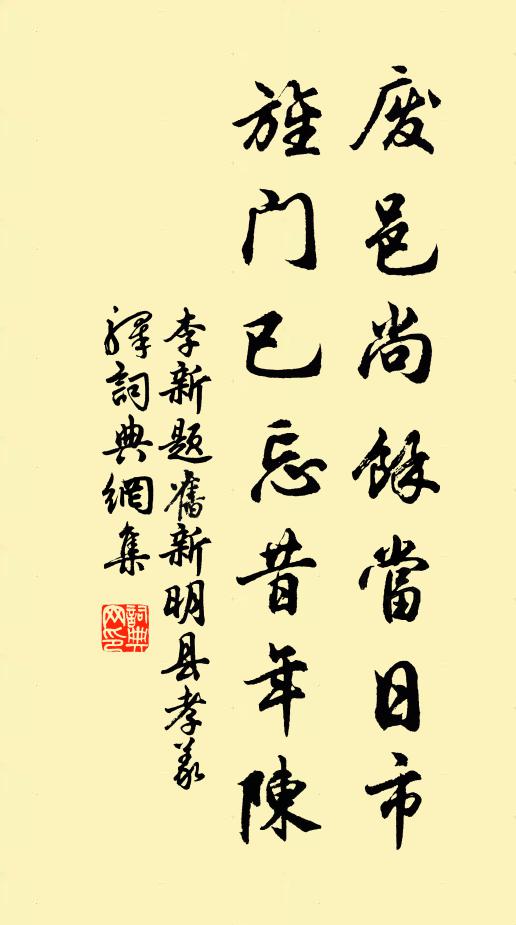 废邑尚餘當日市
旌门已忘昔年陳
李新题舊新明县孝义
释詞典網集
詞典网印